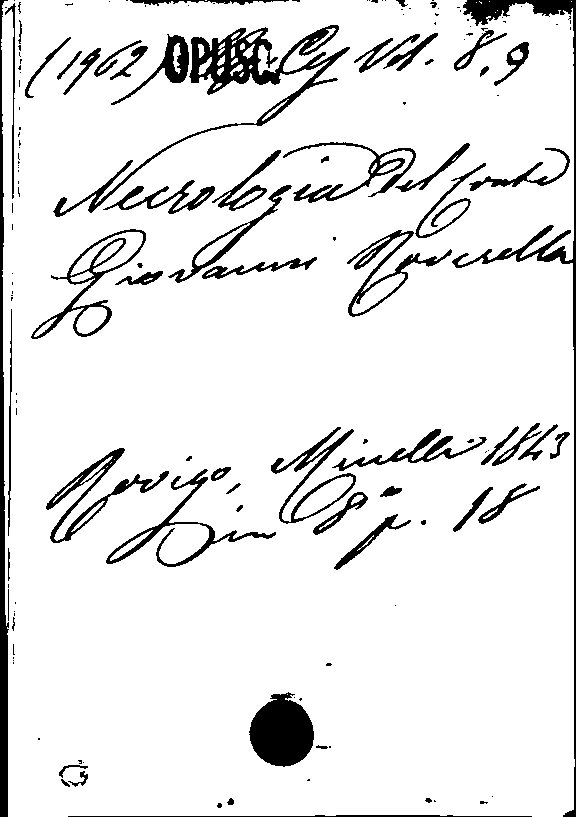 (1962) OPUSC. Cg Vol. 8.9
Necrologia del Conte
Giovanni Roverella
Rovigo, Minelli 1843
in 8° p. 18